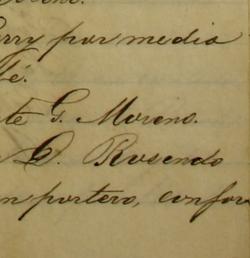 erry por media
fé.
te G. Moreno.
D. Rosendo
n portero, confor